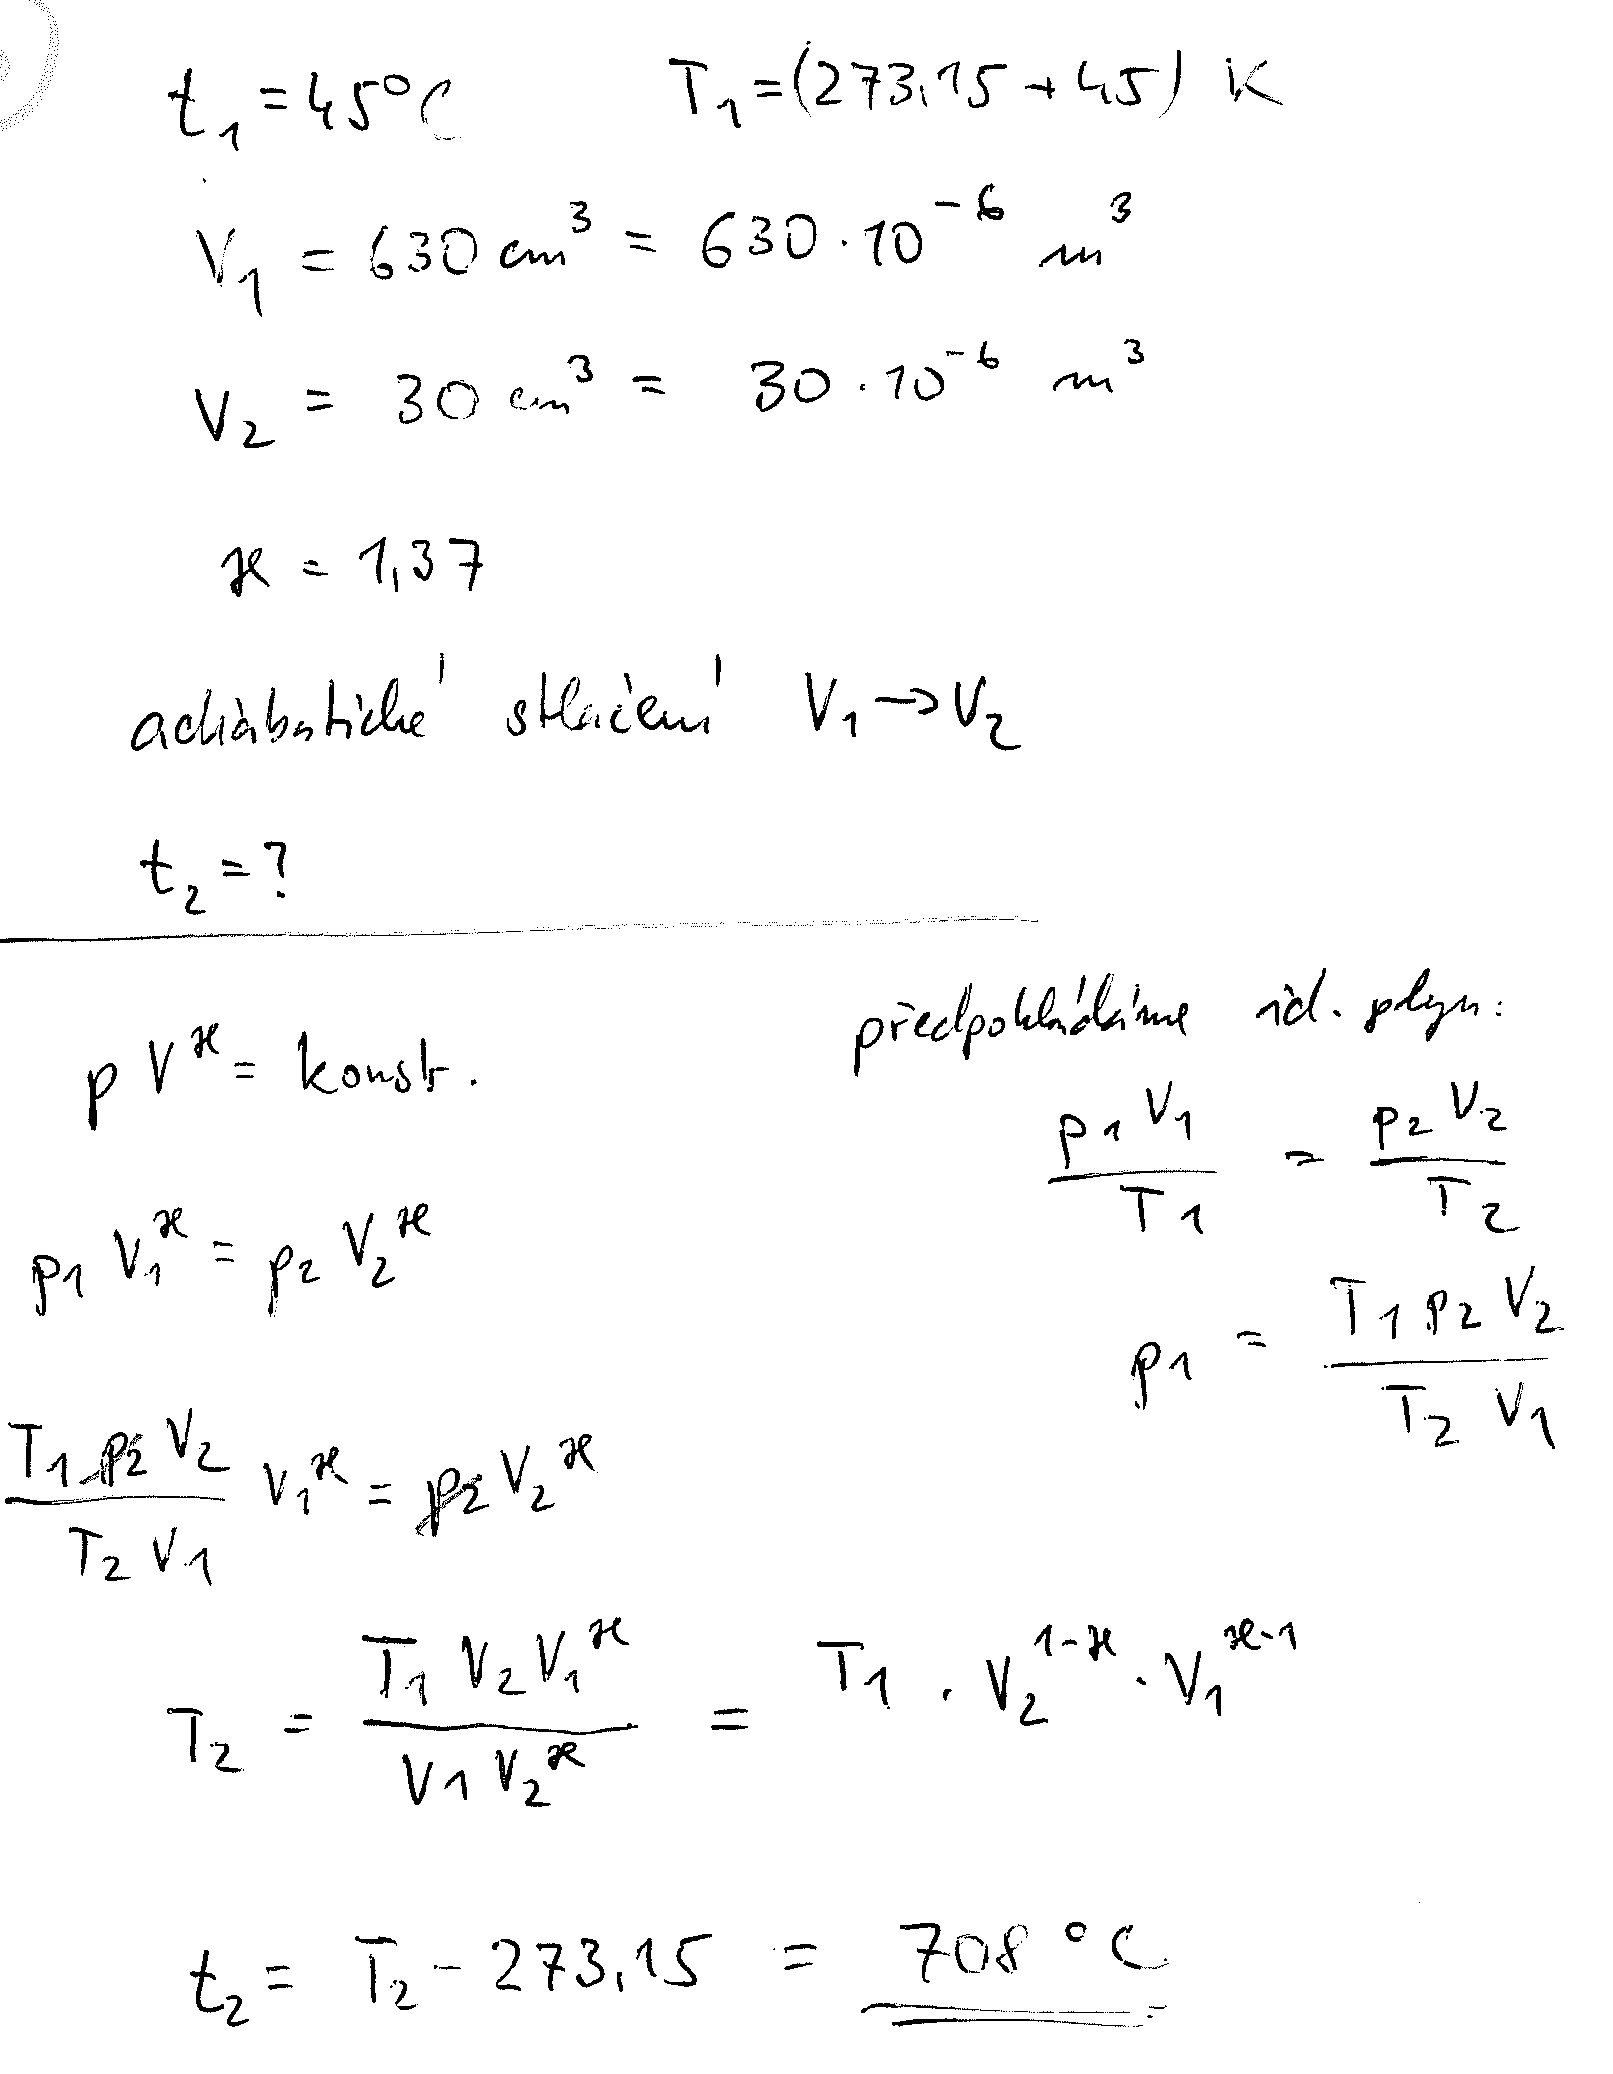 t₁ = 45°C T₁ = (273,15 + 45) K
V₁ = 630 cm³ = 630 · 10⁻⁶ m³
V₂ = 30 cm³ = 30 · 10⁻⁶ m³
ϰ = 1,37
adiabatické stlačení V₁ → V₂
t₂ = ?
předpokládáme id. plyn:
p V^ϰ = konst.
p₁ V₁ / T₁ = p₂ V₂ / T₂
p₁ V₁^ϰ = p₂ V₂^ϰ
p₁ = T₁ p₂ V₂ / T₂ V₁
T₁ p₂ V₂ / T₂ V₁ V₁^ϰ = p₂ V₂^ϰ
T₂ = T₁ V₂ V₁^ϰ / V₁ V₂^ϰ = T₁ · V₂^1-ϰ · V₁^ϰ-1
t₂ = T₂ - 273,15 = 708 °C